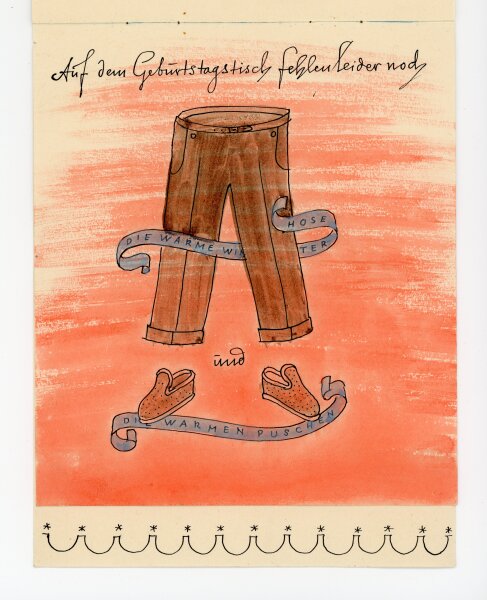 Auf dem Geburtstagstisch fehlen leider noch
DIE WARME WINTER HOSE
und
DIE WARMEN PUSCHEN